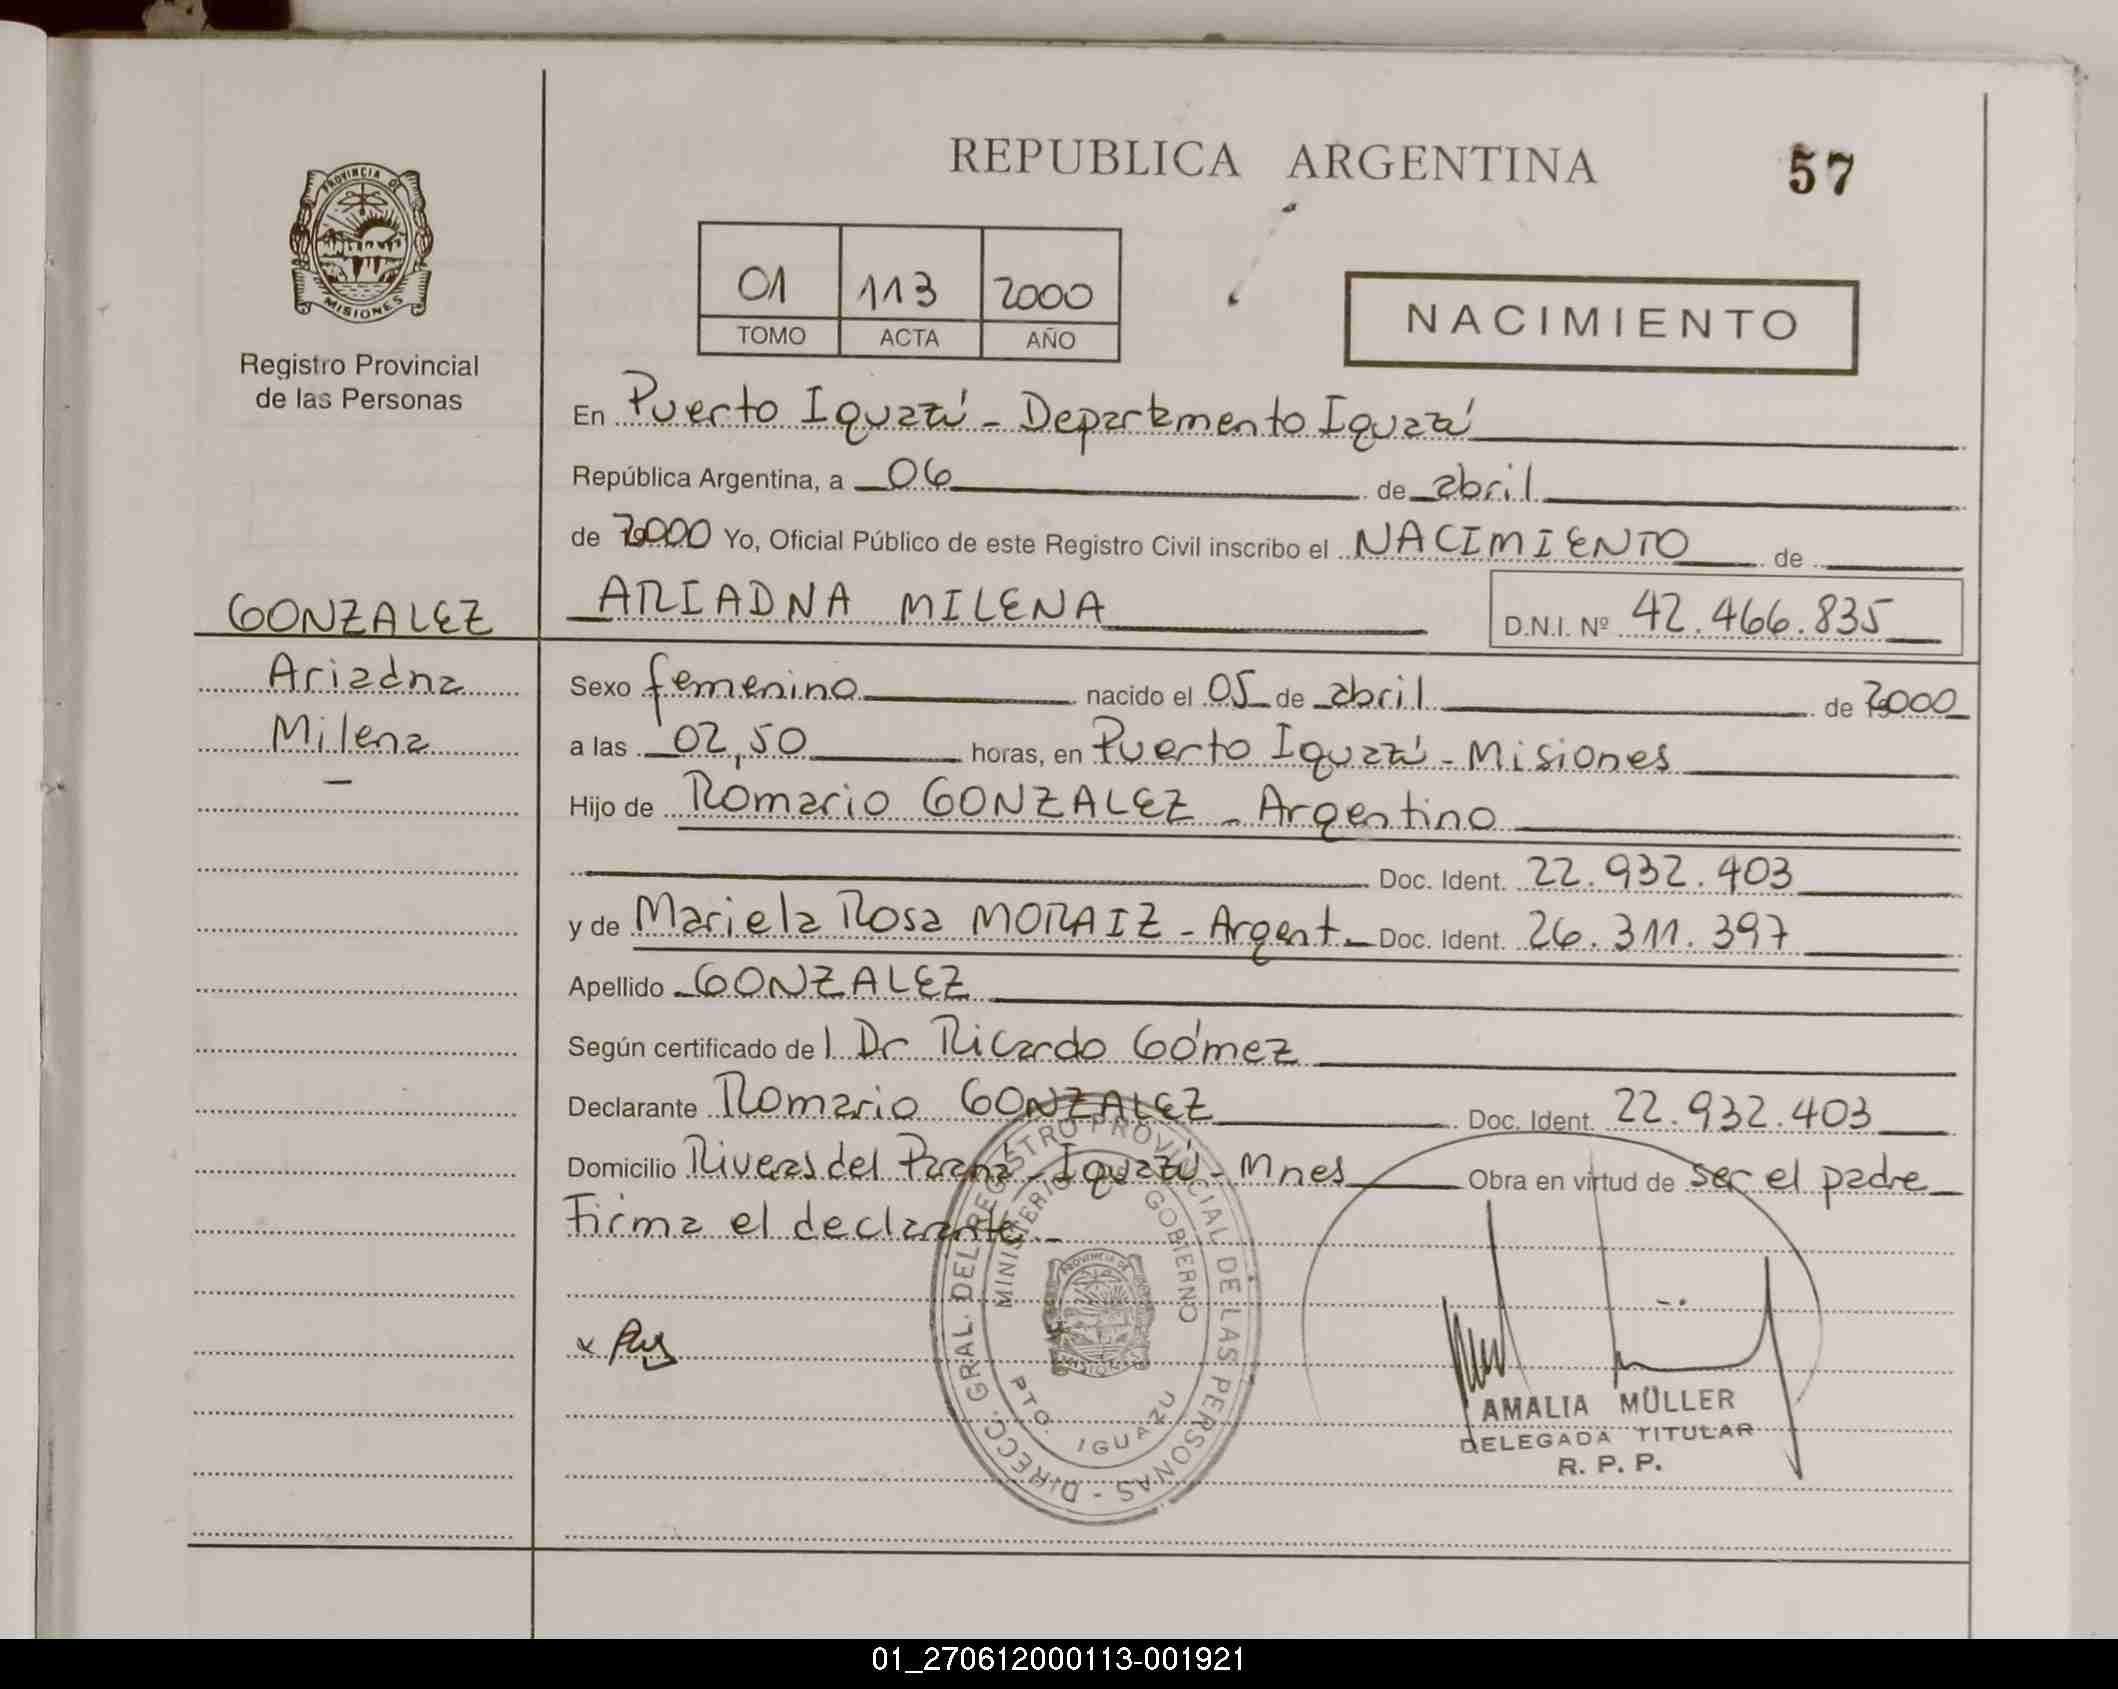 REPUBLICA ARGENTINA
57
PROVINCIA DE
MISIONES
Registro Provincial
de las Personas
01 113 2000
TOMO ACTA AÑO
NACIMIENTO
En Puerto Iguazú - Departamento Iguazú
República Argentina, a 06 de abril
de 2000 Yo, Oficial Público de este Registro Civil inscribo el NACIMIENTO de
GONZALEZ
ARIADNA MILENA
D.N.I. Nº 42.466.835
Ariadna
Milena
Sexo femenino nacido el 05 de abril de 2000
a las 02,50 horas, en Puerto Iguazú - Misiones
Hijo de Romario GONZALEZ - Argentino
Doc. Ident. 22.932.403
y de Mariela Rosa MORAIZ - Argent. Doc. Ident. 26.311.397
Apellido GONZALEZ
Según certificado del Dr Ricardo Gómez
Declarante Romario GONZALEZ Doc. Ident. 22.932.403
Domicilio Riveras del Paraná - Iguazú - Mnes Obra en virtud de ser el padre
Firma el declarante -
DIRECC. GRAL. DEL REGISTRO PROVINCIAL DE LAS PERSONAS -
MINISTERIO GOBIERNO
PROVINCIA DE
MISIONES
PTO. IGUAZU
AMALIA MÜLLER
DELEGADA TITULAR
R. P. P.
01_270612000113-001921